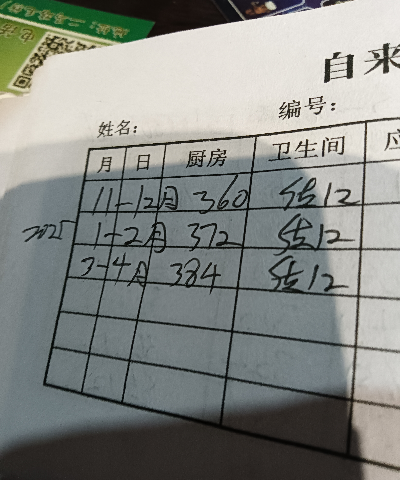 自来
编号:
姓名:
月 日 厨房 卫生间 应
11-12月 360 估12
2025 1-2月 372 估12
3-4月 384 估12